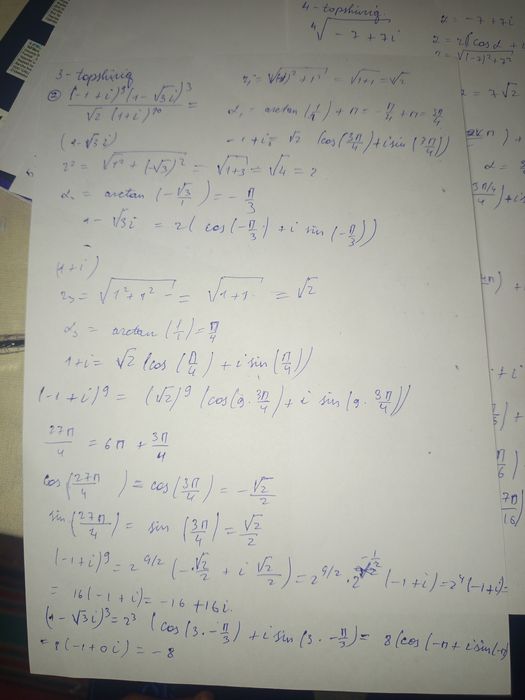 4 - topshiriq
⁴√-7+7i
z = -7+7i
z = 2(cosα +
r = √(-7)²+7²
= 7√2
3 - topshiriq
② (-1+i)⁹(1-√3i)³ / √2 (1+i)²⁰ =
r₁ = √(-1)²+1² = √1+1 = √2
α₁ = arctan(1/-1) + π = -π/4 + π = 3π/4
(1-√3i)
-1+i = √2 (cos(3π/4)+i sin(3π/4))
r₂ = √1²+(-√3)² = √1+3 = √4 = 2
α₂ = arctan(-√3/1) = -π/3
1-√3i = 2(cos(-π/3)+i sin(-π/3))
(1+i)
r₃ = √1²+1² = √1+1 = √2
α₃ = arctan(1/1) = π/4
1+i = √2 (cos(π/4)+i sin(π/4))
(-1+i)⁹ = (√2)⁹ (cos(9·3π/4)+i sin(9·3π/4))
27π/4 = 6π + 3π/4
cos(27π/4) = cos(3π/4) = -√2/2
sin(27π/4) = sin(3π/4) = √2/2
(-1+i)⁹ = 2^9/2 (-√2/2 + i √2/2) = 2^9/2 · 2^-1/2 (-1+i) = 2⁴(-1+i) =
= 16(-1+i) = -16+16i.
(1-√3i)³ = 2³ (cos(3·-π/3)+i sin(3·-π/3) = 8(cos(-π+i sin(-π)
= 8(-1+0i) = -8